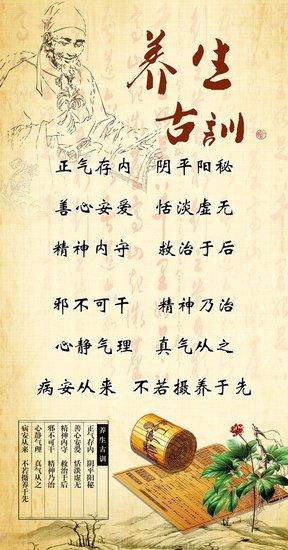 养生
古訓
正气存内 阴平阳秘
善心安爱 恬淡虚无
精神内守 救治于后
邪不可干 精神乃治
心静气理 真气从之
病安从来 不若摄养于先
养生古训
正气存内 阴平阳秘
善心安爱 恬淡虚无
精神内守 救治于后
邪不可干 精神乃治
心静气理 真气从之
病安从来 不若摄养于先